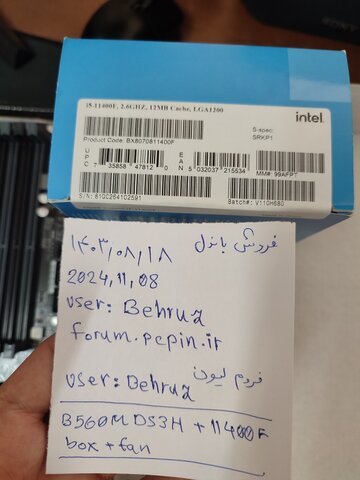 i5-11400F, 2.6GHZ, 12MB Cache, LGA1200
intel
Product Code: BX8070811400F
S-spec:
SRKP1
UPC
7 35858 47812 0
EAN
5 032037 215534
MM#: 99AFPT
S/N: 81QC264102591
Batch#: V110H680
۱۴۰۳/۰۸/۱۸ فروش باندل
2024,11,08
user: Behruz
forum.pcpin.ir
فروم لیون
user: Behruz
B560M DS3H + 11400F
box + fan